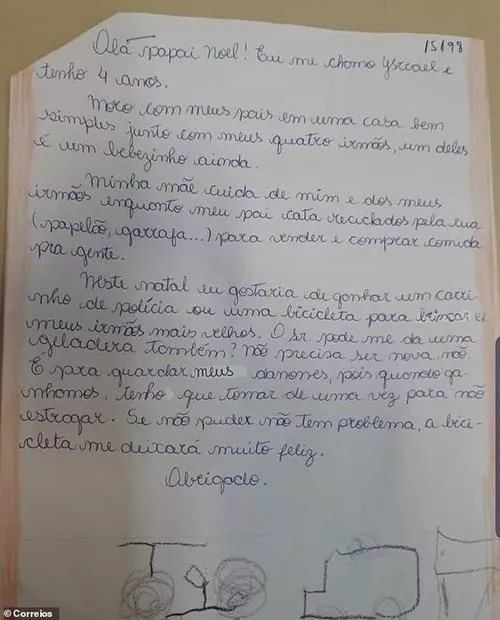 15198
Olá papai Noel! Eu me chamo Ysrrael e
tenho 4 anos.
Moro com meus pais em uma casa bem
simples junto com meus quatro irmãos, um deles
é um bebezinho ainda.
Minha mãe cuida de mim e dos meus
irmãos enquanto meu pai cata reciclados pela rua
(papelão, garrafa...) para vender e comprar comida
pra gente.
Neste natal eu gostaria de ganhar um carri
nho de polícia ou uma bicicleta para brincar c/
meus irmãos mais velhos. O sr. pode me da uma
geladera também? não precisa ser nova, não.
É pra guardar meus danones, pois quando ga-
nhamos, tenho que tomar de uma vez para não
estragar. Se não puder não tem problema, a bici-
cleta me deixará muito feliz.
Obrigado.
© Correios